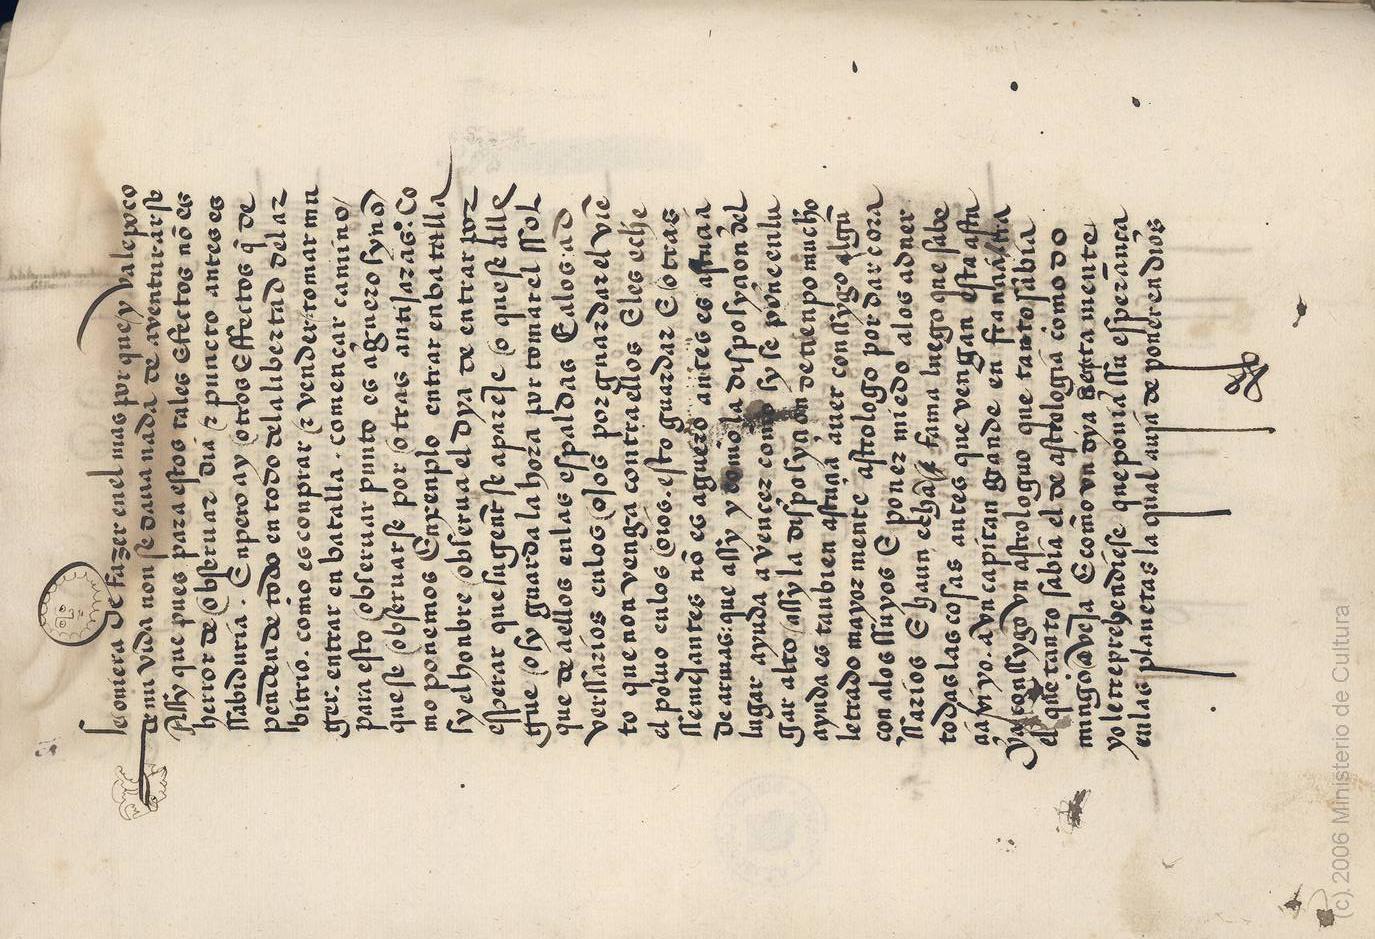 se oviera de fazer en el mas por que y va le poco
de mi vida non se dava nada de aventurarse
Assy que pues para estos tales efectos nõ es
herror de obseruar dia r puncto antes es
ssabiduria. Enpero ay otros Effectos q̃ de
penden de todo en todo de la libertad del ar
bitrio. como es conprar r vender tomar mu
ger. entrar en batalla. comencar camino
para esto obseruar punto es aguero synõ
que se obseruarse por otras antisaras. Co
mo ponemos Enxenplo entrar en batalla
sy el honbre obserua el dya de entrar por
esperar que su gent se apareje o que se alle
gue o sy guarda la hora por tomar el ssol
que de a ellos en las espaldas E a los ad
verssarios en los ojos por guardar el vie
to que non venga contra ellos E les eche
el poluo en los ojos. esto guardar E otras
ssemejantes nõ es aguero antes es astuçia
de armas: que assy y como la disposyçion del
lugar ayuda a vencer como sy se põne en lu
gar alto assy la disposyçion de tienpo mucho
ayuda es tanbien astuçia aver consygo algũ
letrado mayor mente astrologo por dar cora
con a los ssuyos E poner miedo a los aduer
ssarios E haun echasse fama luego que sabe
todas las cosas antes que vengan esta astu
çia vi yo. a vn capitan grande en
ya consygo vn astrologuo que tanto sabia
el que tanto sabia el de astrologia como do
mingo oveja E como vn dya secreta mente
yo le rreprehendiese que ponia ssu esperança
en las planetas la qual avia de poner en dios
(c) 2006 Ministerio de Cultura